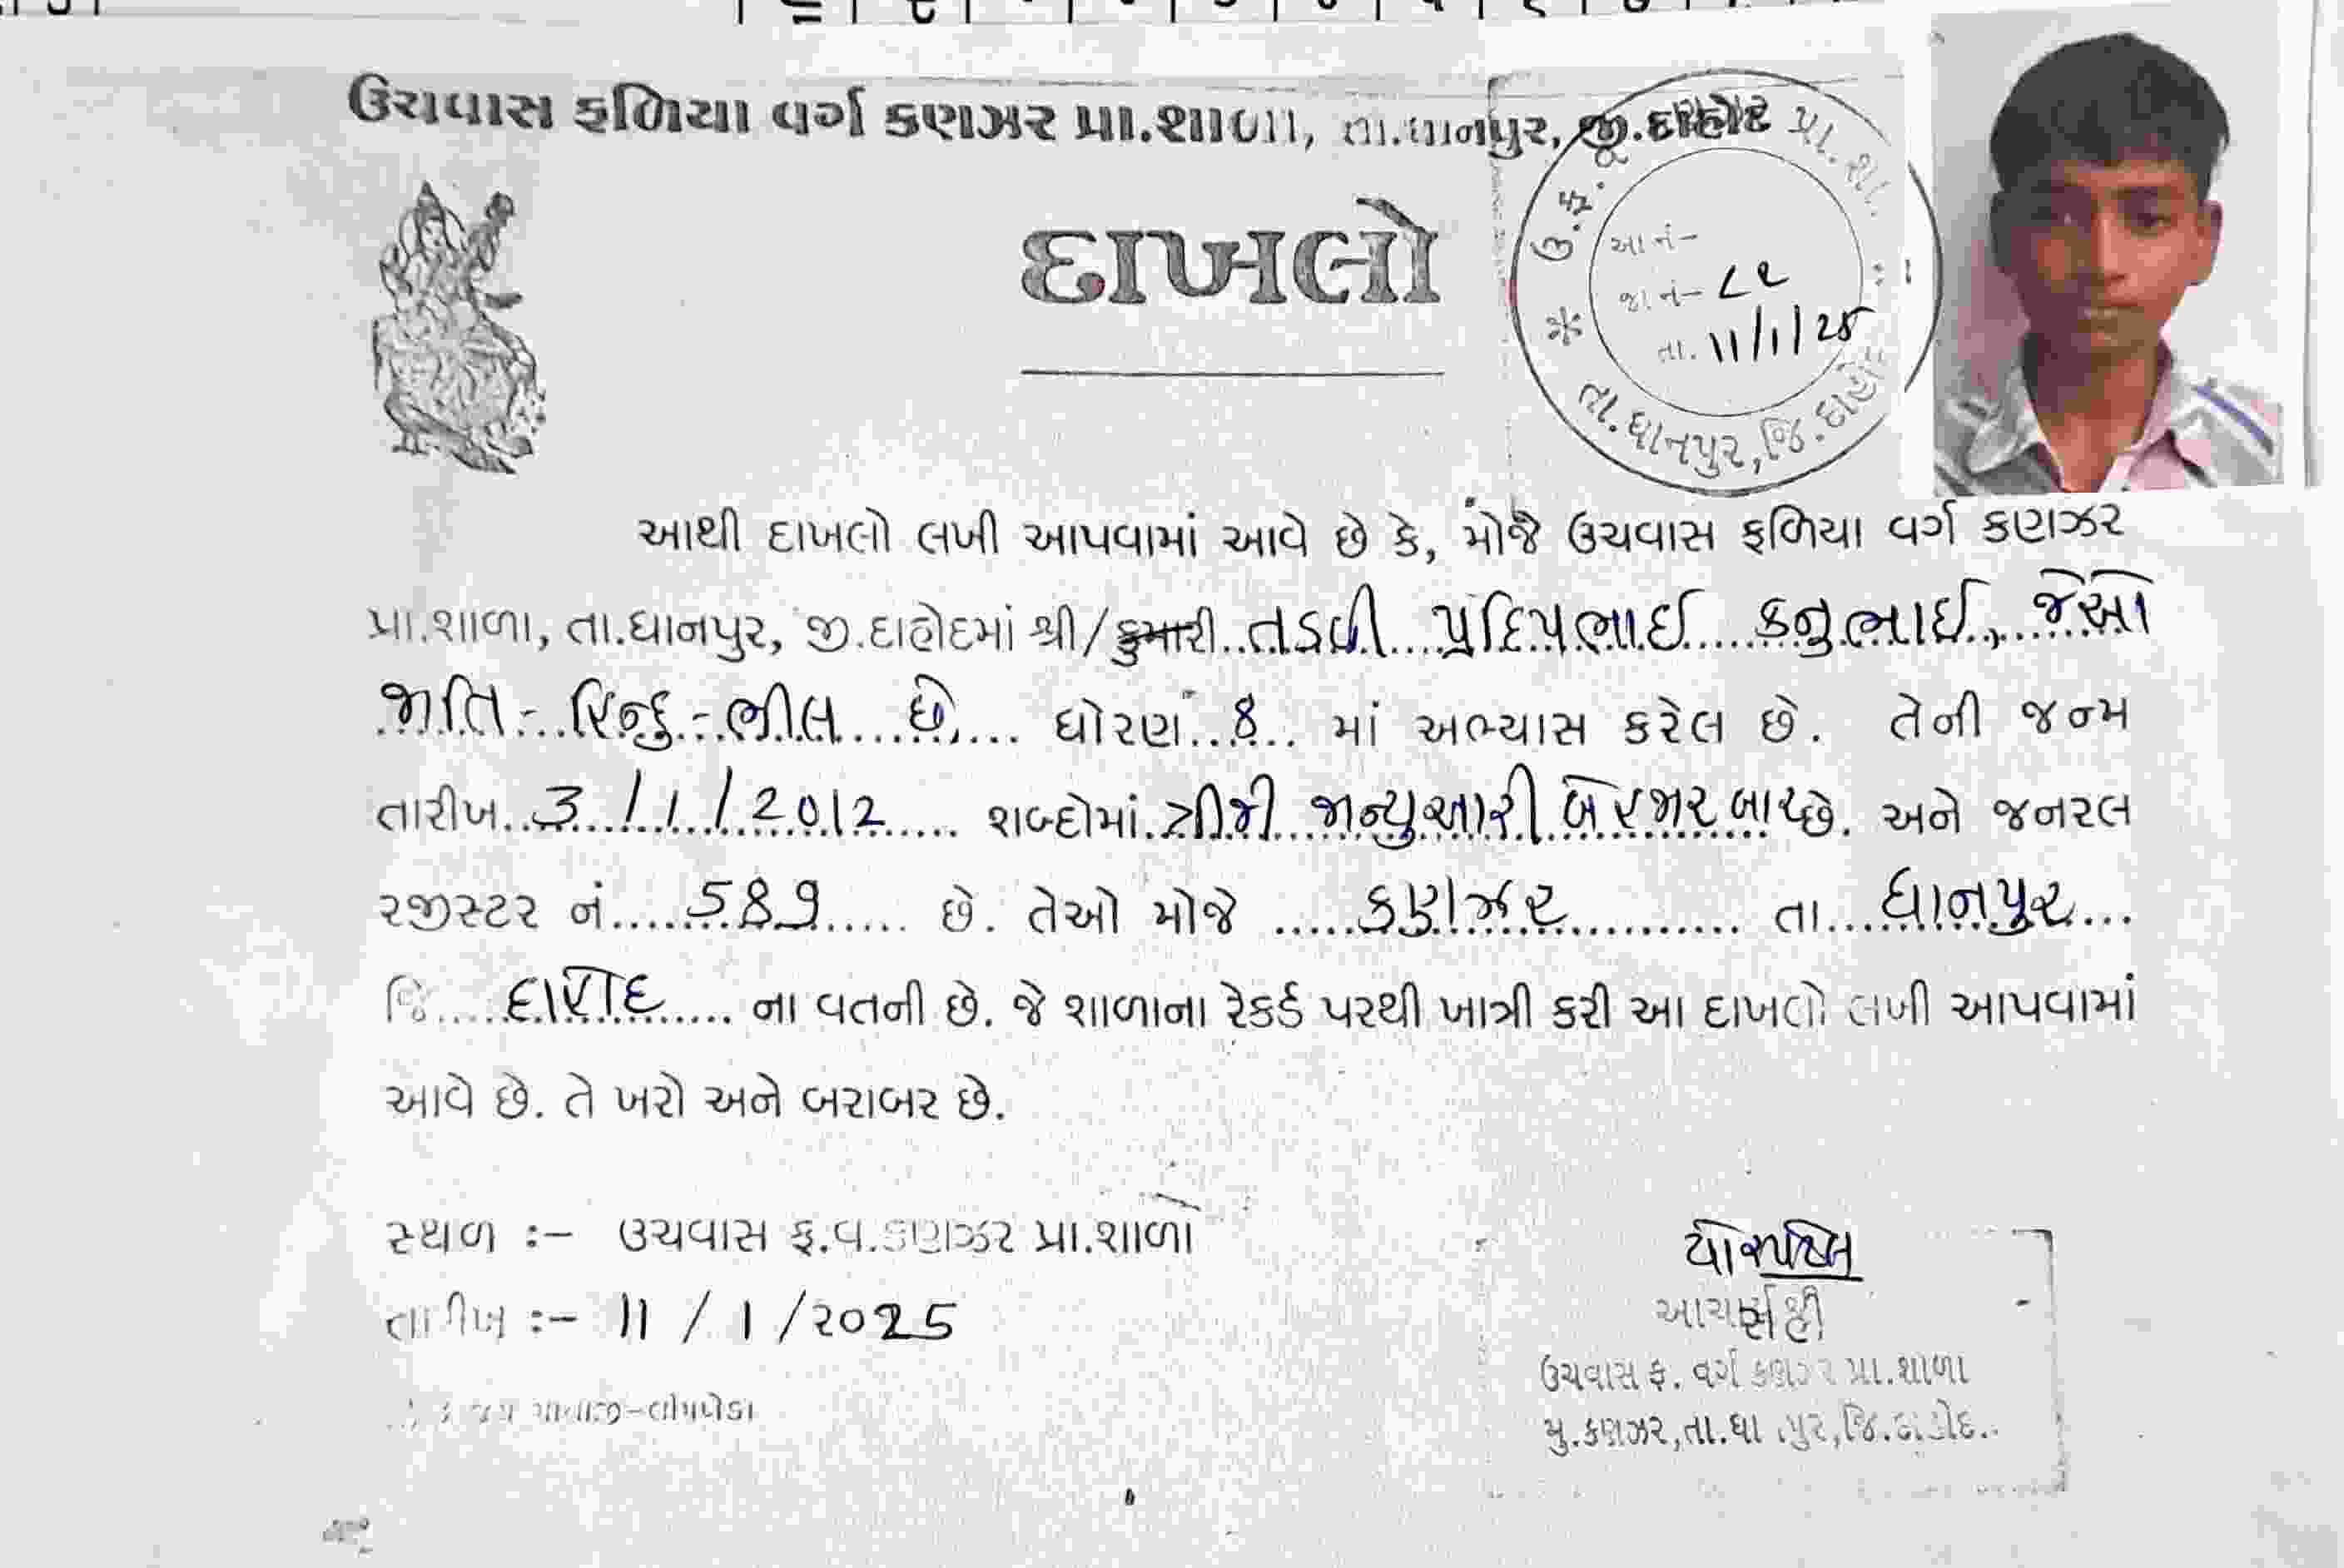 ઉચવાસ ફળિયા વર્ગ કણઝર પ્રા.શાળા, તા.ધાનપુર, જી.દાહોદ
પ્રા. શા.
આ નં-
જા નં- ૮૨
તા. 11/1/25
તા.ધાનપુર,જિ.દાહોદ
દાખલો
આથી દાખલો લખી આપવામાં આવે છે કે, મોજે ઉચવાસ ફળિયા વર્ગ કણઝર
પ્રા.શાળા, તા.ધાનપુર, જી.દાહોદમાં શ્રી/કુમારી..તડવી પ્રદિપભાઈ કનુભાઈ, જેઓ
જાતિ - હિન્દુ - ભીલ છે, ધોરણ 8 માં અભ્યાસ કરેલ છે. તેની જન્મ
તારીખ 3 / 1 / 2012 શબ્દોમાં ત્રીજી જાન્યુઆરી બેહજાર બાર છે. અને જનરલ
રજીસ્ટર નં. 589 છે. તેઓ મોજે કણઝર તા ધાનપુર
જિ દાહોદ ના વતની છે. જે શાળાના રેકર્ડ પરથી ખાત્રી કરી આ દાખલો લખી આપવામાં
આવે છે. તે ખરો અને બરાબર છે.
સ્થળ :- ઉચવાસ ફ.વ.કણઝર પ્રા.શાળા
તારીખ :- 11 / 1 /૨૦25
આચાર્યશ્રી
ઉચવાસ ફ. વર્ગ કણઝર પ્રા.શાળા
મુ.કણઝર,તા.ધાનપુર,જિ.દાહોદ.